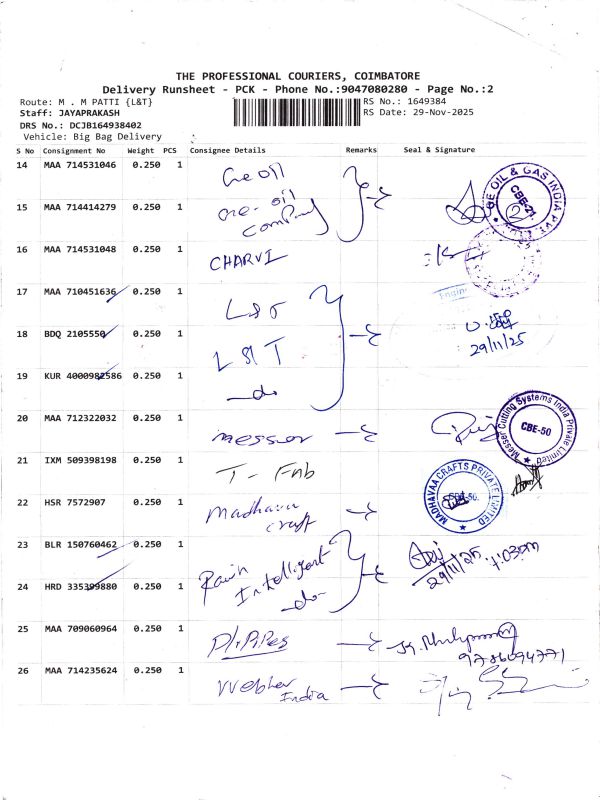 THE PROFESSIONAL COURIERS, COIMBATORE
Delivery Runsheet - PCK - Phone No.:9047080280 - Page No.:2
Route: M . M PATTI {L&T}
RS No: 1649384
Staff: JAYAPRAKASH
RS Date: 29-Nov-2025
DRS No.: DCJB164938402
Vehicle: Big Bag Delivery
S No Consignment No Weight PCS Consignee Details Remarks Seal & Signature
14 MAA 714531046 0.250 1 Ge oil
GE OIL & GAS INDIA PVT. CBE-21
15 MAA 714414279 0.250 1 Ge. oil
company
16 MAA 714531048 0.250 1 CHARVI
17 MAA 710451636 0.250 1 L&T
Engin
18 BDQ 2105550 0.250 1 L&T
29/11/25
19 KUR 4000982586 0.250 1 do
20 MAA 712322032 0.250 1 messer
Messer Cutting Systems India Private Limited CBE-50
21 IXM 509398198 0.250 1 T - Fab
22 HSR 7572907 0.250 1 Madhava
craft
MADHAVAA CRAFTS PRIVATE LIMITED CBE-50.
23 BLR 150760462 0.250 1
Intelligent
29/11/25
24 HRD 335399880 0.250 1 do
25 MAA 709060964 0.250 1
9786094771
26 MAA 714235624 0.250 1
India